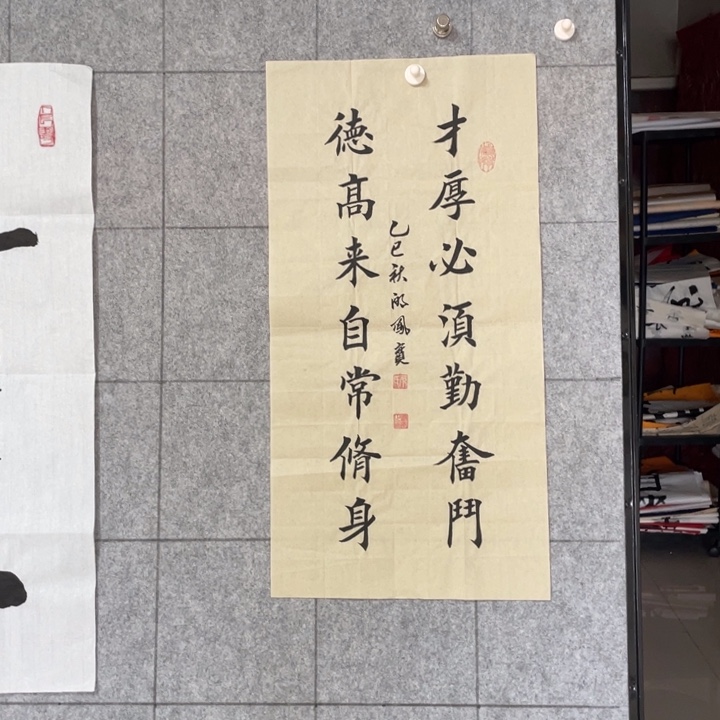 才厚必須勤奮鬥
德高来自常脩身
乙巳秋
鳳